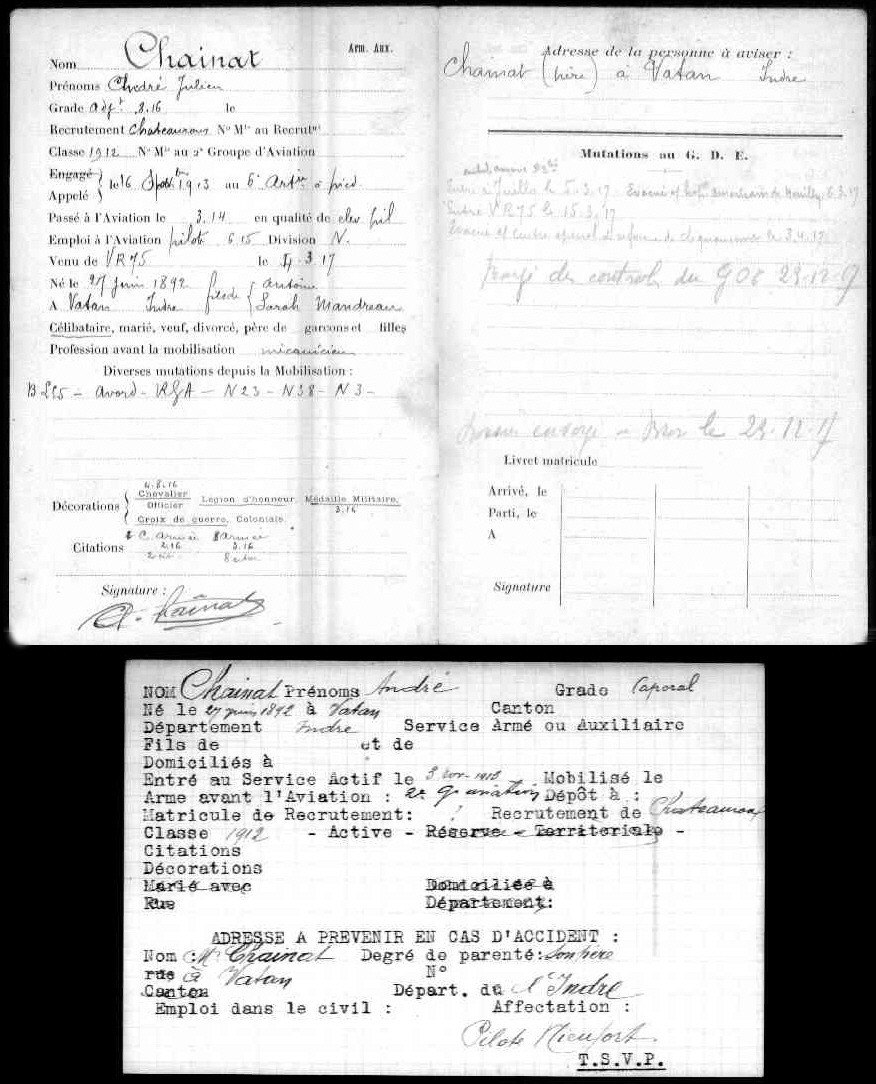 Arm. Aux.
Nom Chainat
Prénoms André Julien
Grade adjt 3.16 le
Recrutement Chateauroux No Mle au Recrutt
Classe 1912 No Mle au 2e Groupe d'Aviation
Engagé
Appelé
le 16 1913 au 6e à pied
Passé à l'Aviation le 3.14 en qualité de elev pil
Emploi à l'Aviation pilote 6.15 Division N.
Venu de VR75 le 3.17
Né le 27 juin 1892 fils de Antoine
A Vatan Indre Sarah Mandreau
Célibataire, marié, veuf, divorcé, père de garçons et filles
Profession avant la mobilisation mécanicien
Diverses mutations depuis la Mobilisation :
- avord - RGA - N23 - N38 - N3 -
4.8.16
Décorations Chevalier Officier Légion d'honneur, Médaille Militaire,
3.16
Croix de guerre, Coloniale.
Citations C. Armée Armée
2.16 3.16
Signature :
A. Chainat
Adresse de la personne à aviser :
Chainat (père) à Vatan Indre
Mutations au G. D. E.
le 5.3.17. Evacué 6.3.17
Entre VR75 le 15.3.17
Evacué le 3.4.17
des controles du GDE 29-12-17
le 29-12-17
Livret matricule
Arrivé, le
Parti, le
A
Signature
NOM Chainat Prénoms André Grade Caporal
Né le 27 juin 1892 à Vatan Canton
Département Indre Service Armé ou Auxiliaire
Fils de et de
Domiciliés à
Entré au Service Actif le 3 1913 Mobilisé le
Arme avant l'Aviation : 2e Dépôt à :
Matricule de Recrutement: ? Recrutement de Chateauroux
Classe 1912 - Active - Réserve - Territoriale -
Citations
Décorations
Marié avec Domiciliée à
Rue Département:
ADRESSE A PREVENIR EN CAS D'ACCIDENT :
Nom : Mr Chainat Degré de parenté: son père
rue à Vatan No
Canton Départ. du l'Indre
Emploi dans le civil : Affectation :
Pilote Nieuport
T.S.V.P.